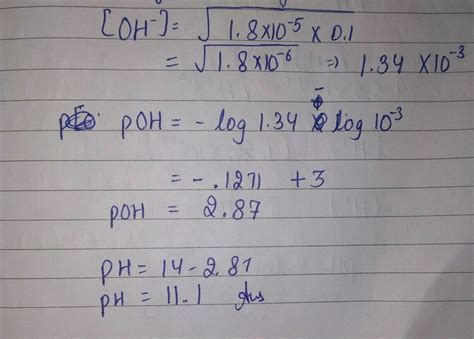 [OH⁻] = √1.8×10⁻⁵ × 0.1
= √1.8×10⁻⁶ ⇒ 1.34 ×10⁻³
pOH = - log 1.34 - log 10⁻³
= - .1271 + 3
pOH = 2.87
pH = 14 - 2.87
pH = 11.1 Ans